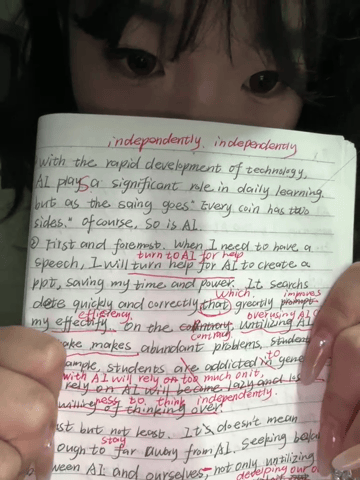 independently, independently
with the rapid development of technology,
AI plays a significant role in daily learning.
but as the saing goes: "Every coin has two
sides." Of course, so is AI.
② First and foremost. When I need to have a
turn to AI for help
speech, I will turn help for AI to create a
ppt, saving my time and power. It searchs
which improves
date quickly and correctly that greatly
efficiency overusing AI
my effectify. On the contrary, untilizing AI
contrary
make makes abundant problems. student
to
ample, students are addicted in gene
with AI will rely on too much on it,
rely on AI will become lazy and
ness to think independently.
willing of thinking over.
st but not least. It's doesn't mean
stay
ough to far away from AI. Seeking
ween AI and ourselves, not only untilizing
developing our